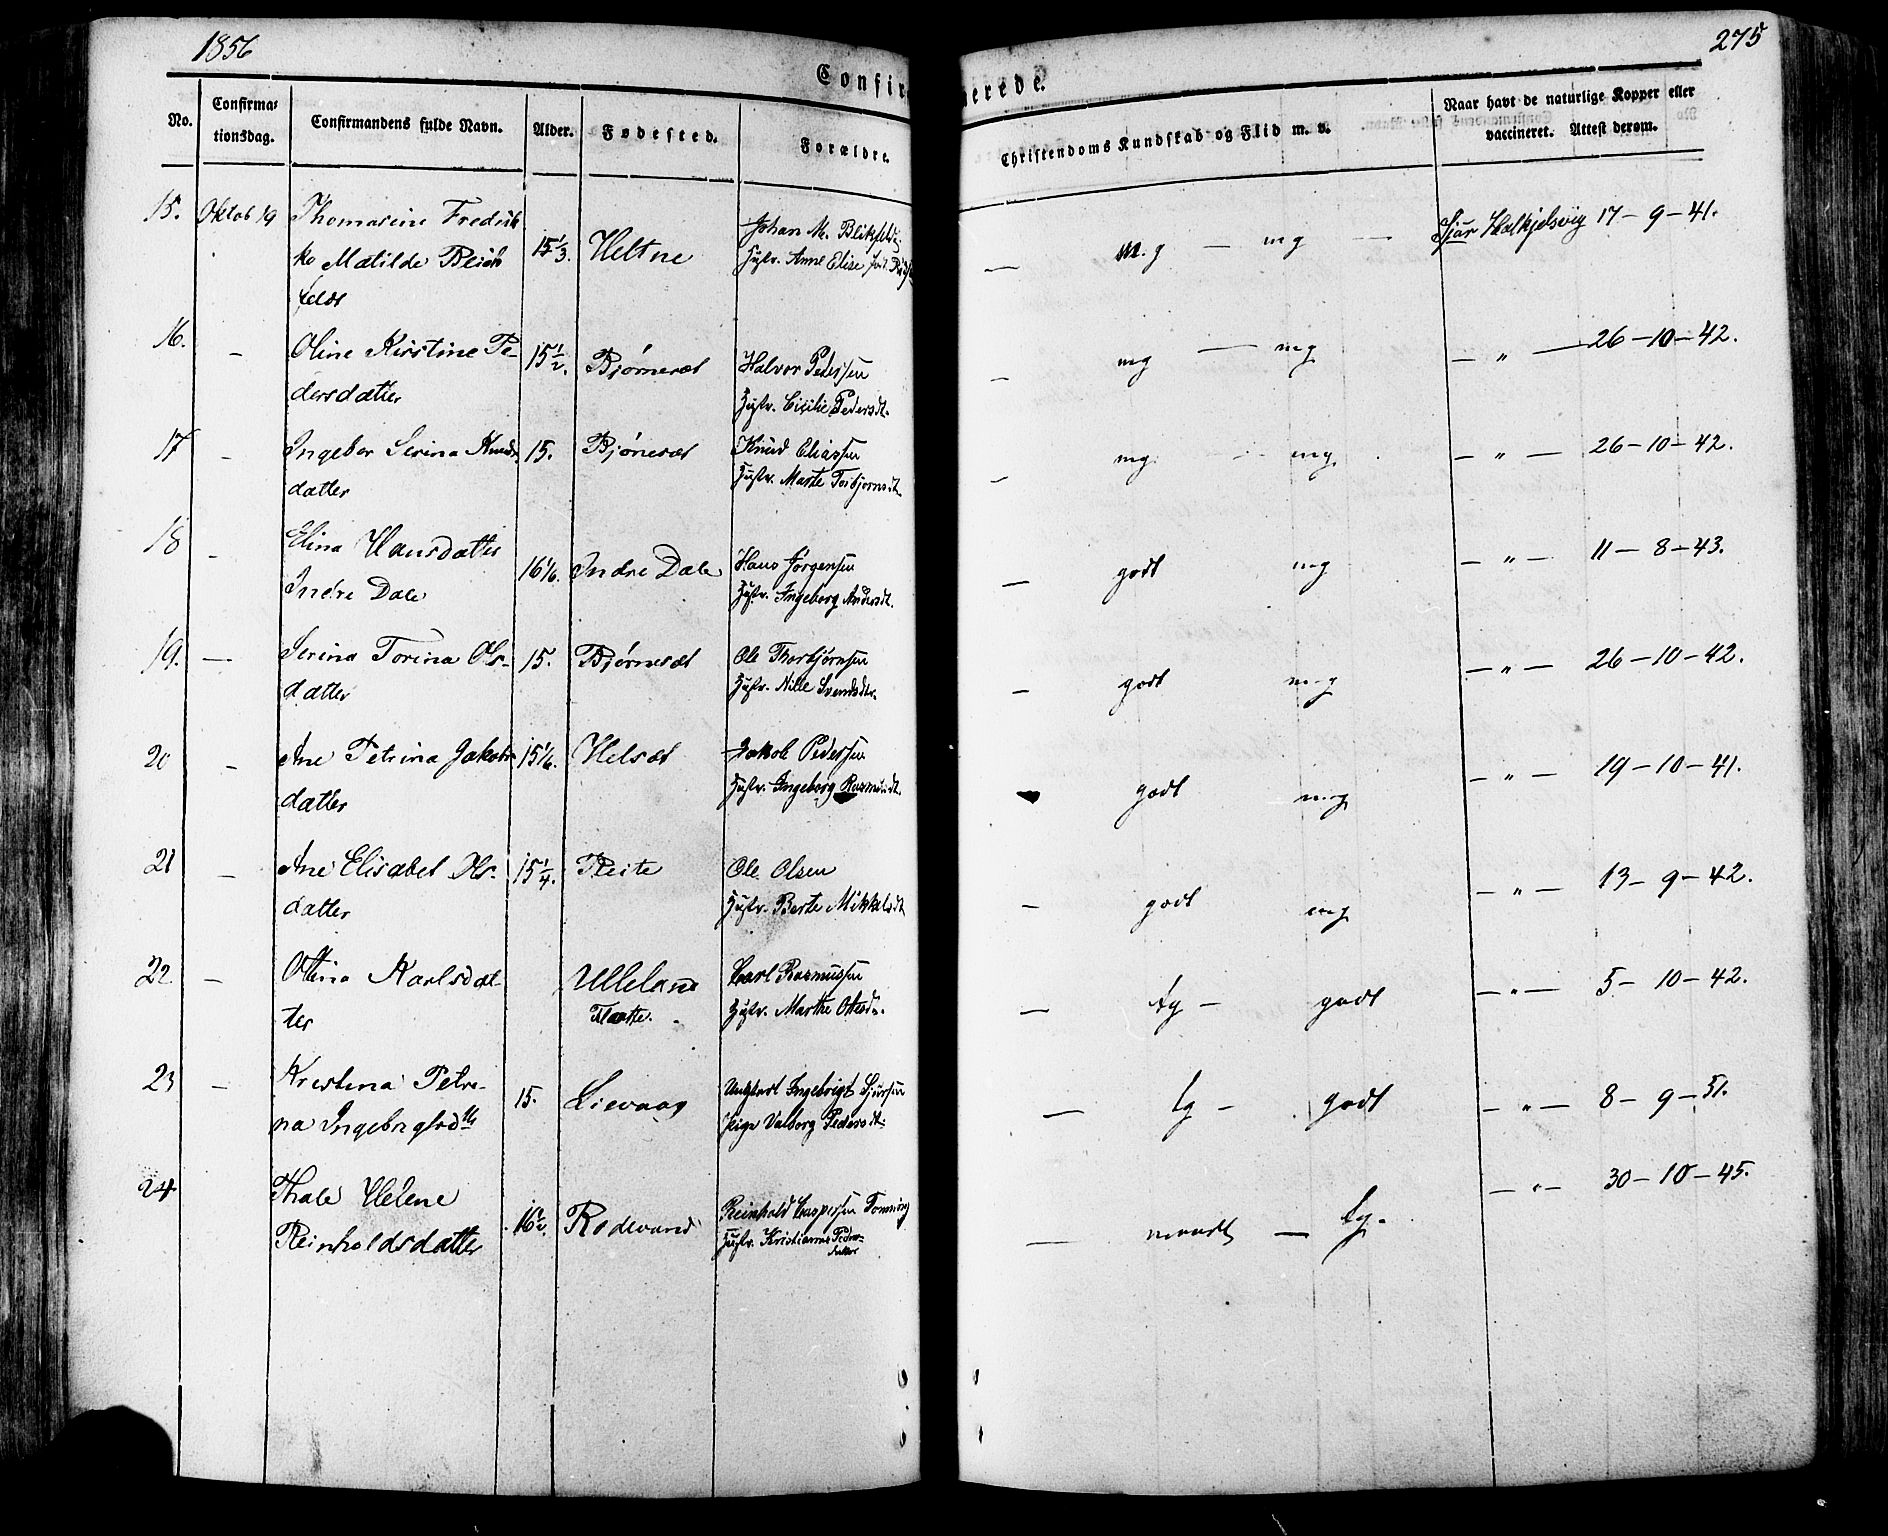 1856
275
Confirmerede.
No.
Confirma-
tionsdag.
Confirmandens fulde Navn.
Alder.
Fødested.
Forældre.
Christendoms Kundskab og Flid m. v.
Naar havt de naturlige Kopper eller
vaccineret. Attest derom.
15. Oktob 19 Thomasine Fredrik
ke Matilde
feldt
15 1/3. Heltne
Johan M. Blikfeldt
Hustr. Anne Elise
— m.g — mg — Sjur Halkjelsvig 17-9-41.
16. — Oline Kirstine Pe-
dersdatter
15 1/2. Bjørneset
Halvor Pedersen
Hustr. Cicilie Pedersdt.
— mg — mg — " — 26-10-42.
17 — Ingebor Serina Knuds
datter
15. Bjøneset
Knud Eliassen
Hustr. Marte Torbjørnsdt.
— mg. mg. — " — 26-10-42.
18 — Elina Hansdatter
Indre Dale
16 1/6. Indre Dale
Hans Jørgensen
Hustr. Ingeborg Andersdt.
— godt mg — " — 11-8-43.
19. — Serina Torina Ols-
datter
15. Bjørneset
Ole Thorbjørnsen
Hustr. Nille Svendsdtr.
— godt mg — " — 26-10-42.
20 — Ane Petrina Jakobs
datter
15 1/6. Helset
Jakob Pedersen
Hustr. Ingeborg Rasmusdt.
godt mg — " — 19-10-41.
21 — Ane Elisabet Ols-
datter
15 1/4. Reite
Ole Olsen
Hustr. Berte Mikkelsdt.
— godt mg — " — 13-9-42.
22 — Oltina Karlsdat
ter
Ulleland
Flaatte.
Carl Rasmussen
Hustr. Marthe
— tg — godt — " — 5-10-42.
23 — Kristina Petri-
na Ingebrigtsdtr
15. Lievaag
Ungkarl Ingebrigt Sjursen
Pige Valborg Pedersdt.
— tg — godt — " — 8-9-51.
24 Thale Helene
Reinholdsdatter
16 1/2. Rødevand
Reinhold Caspersen
Hustr. Kristianne Peders-
datter
— maadt — tg. — " — 30-10-45.